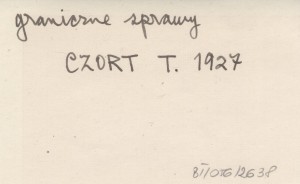 graniczne sprawy
CZORT T. 1927
BI/016/2638